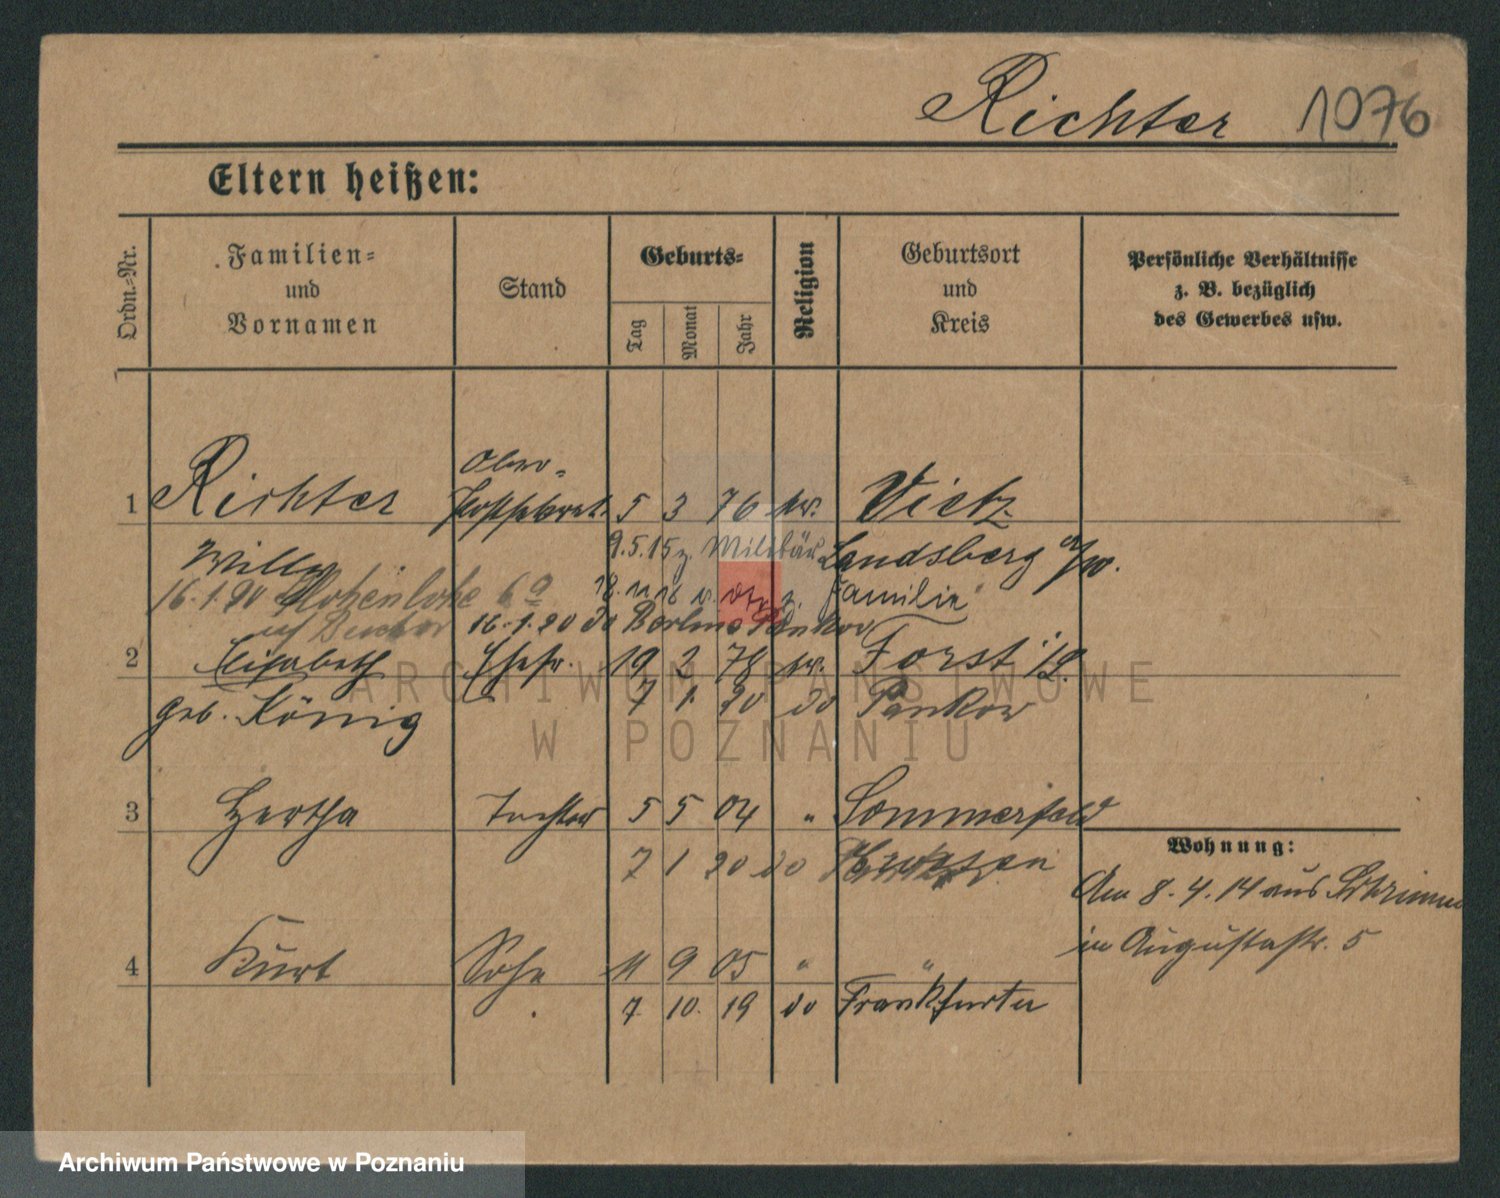 Richter 1076
Eltern heißen:
Ordn.-Nr.
Familien-
und
Vornamen
Stand
Geburts-
Tag
Monat
Jahr
Religion
Geburtsort
und
Kreis
Persönliche Verhältnisse
z. B. bezüglich
des Gewerbes usw.
Ober-
1 Richter Postsekret. 5 3 76 ev. Vietz
Willy 9.5.15 z. Militär Landsberg a/W.
16.1.20 Hohenlohe 6a 18.11.16 v. z. Familie
16.1.20 do Berlin Pankow
2 Elisabeth Ehefr. 19 2 78 ev. Forst i/L.
geb. König 7 1. 20 do Pankow
3 Hertha Tochter 5 5 04 " Sommerfeld
7 1 20 do
Wohnung:
Am 8.4.14 aus Schrimm
in Augustastr. 5
4 Kurt Sohn 11 9 05 " "
7. 10. 19 do Frankfurt
ARCHIWUM PAŃSTWOWE
W POZNANIU
Archiwum Państwowe w Poznaniu